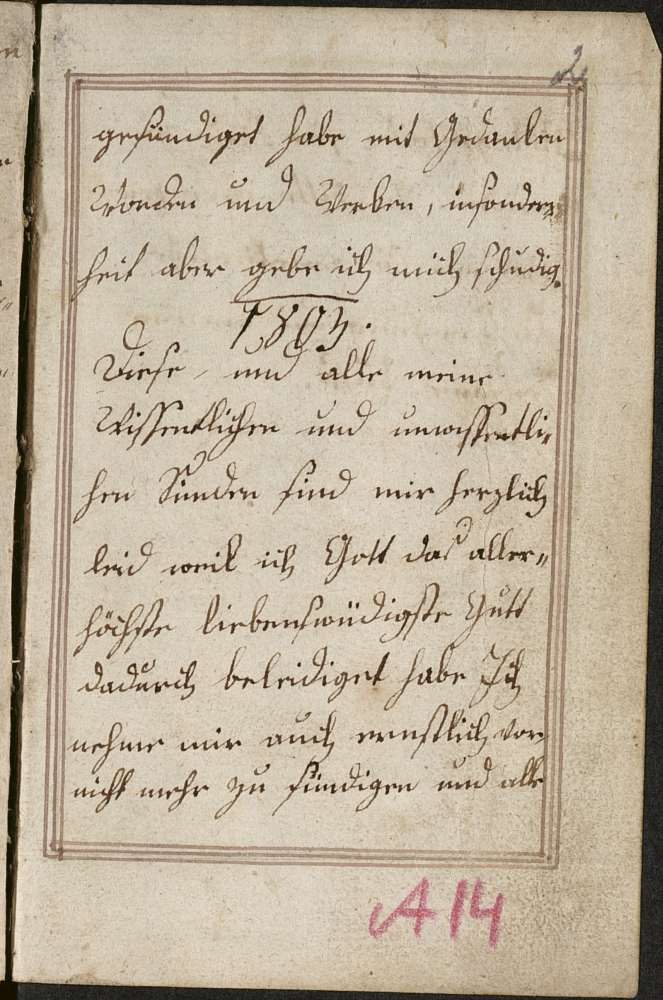 2
gesündiget habe mit Gedanken
Worden und Werken, insonder=
heit aber gebe ich mich schudig.
1803.
Diese und alle meine
Wissentlichen und unwissentli=
hen Sünden sind mir herzlich
leid weil ich Gott das aller=
höchste liebenswüdigste Gutt
dadurch beleidiget habe Ich
nehme mir auch ernstlich vor
nicht mehr zu sündigen und alle
A14